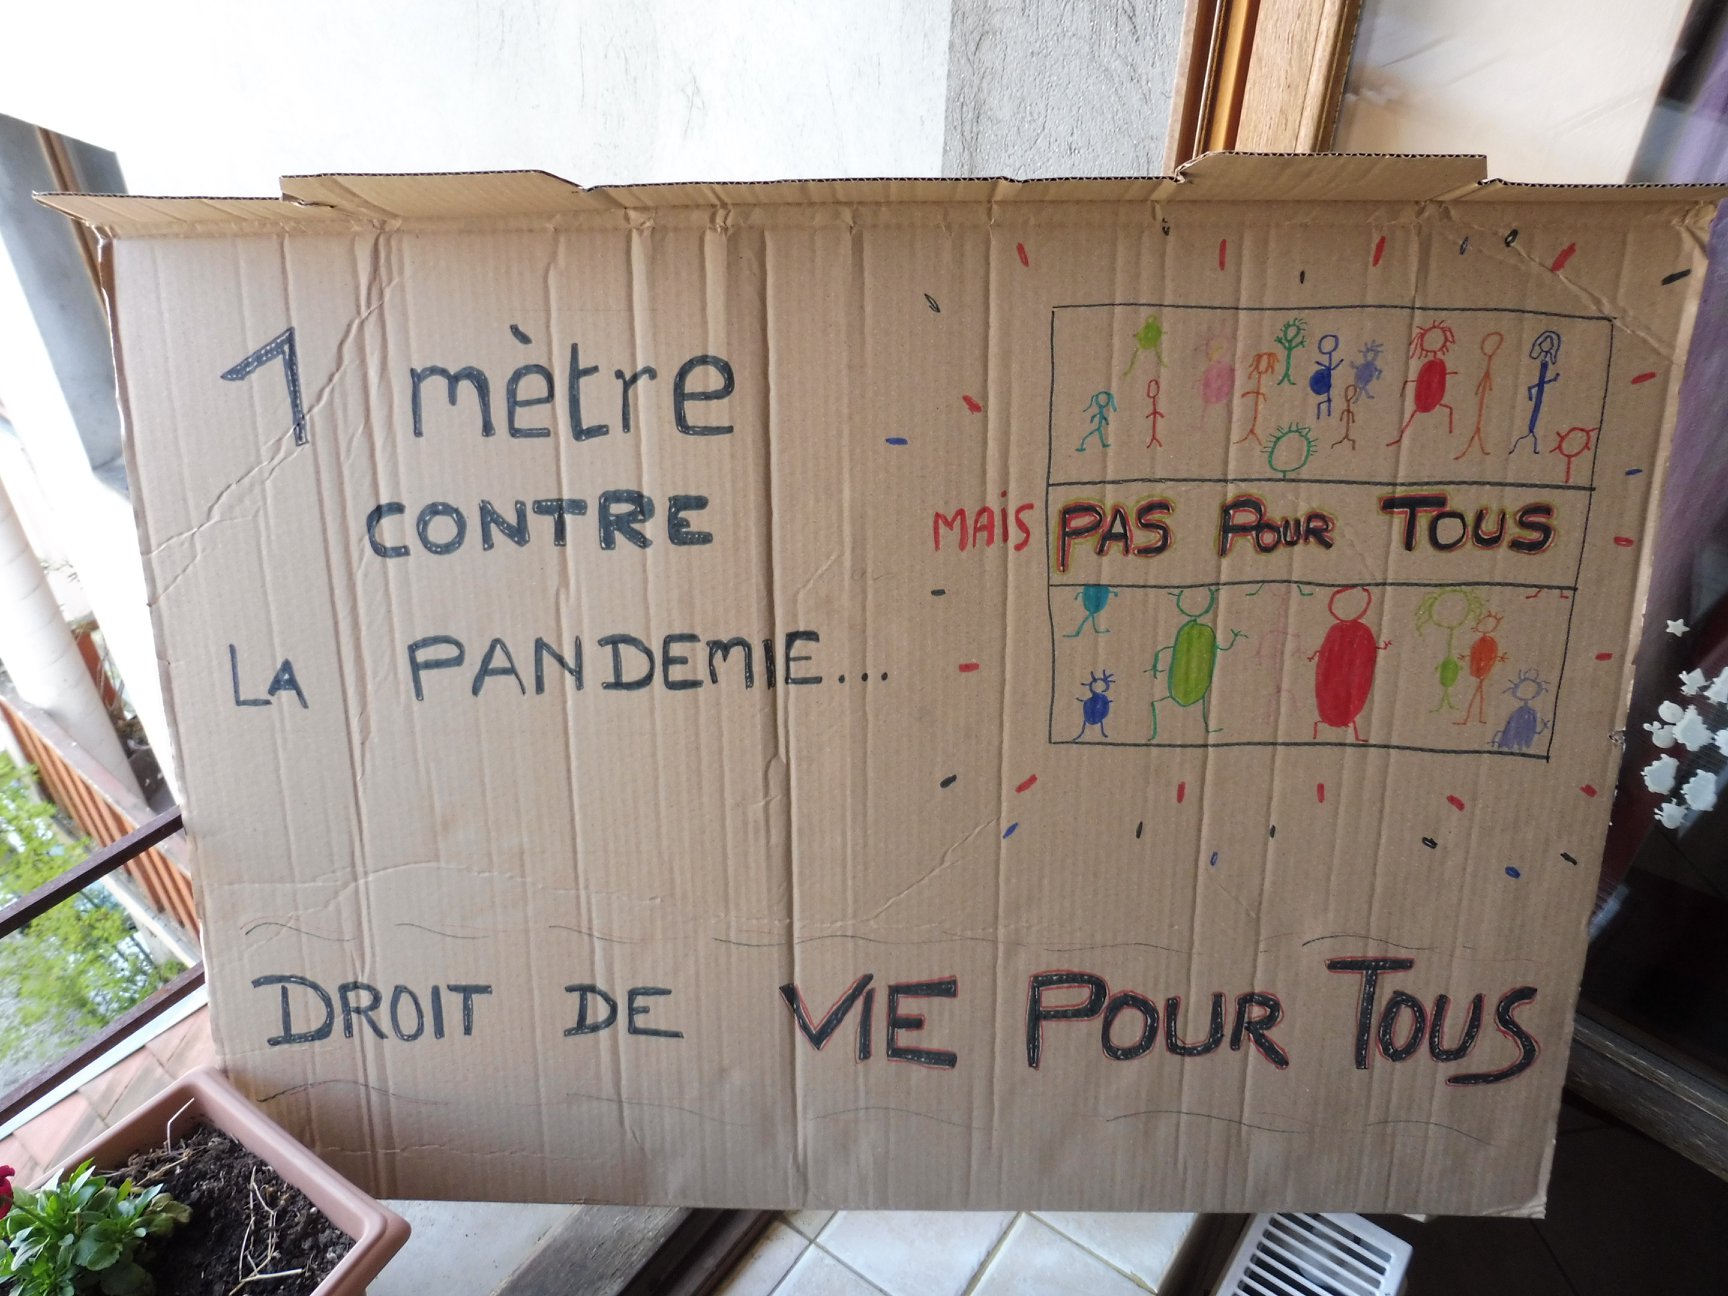 1 mètre
CONTRE
LA PANDEMIE...
MAIS PAS POUR TOUS
DROIT DE VIE POUR TOUS